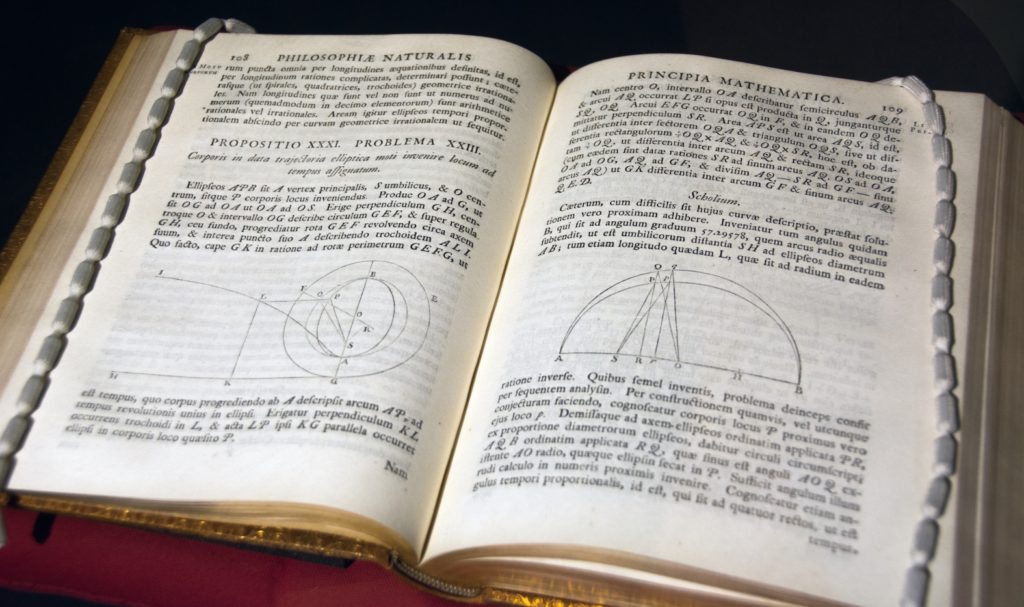 108 PHILOSOPHIÆ NATURALIS
De Motu Corporum
rum puncta omnia per longitudines æquationibus definitas, id est,
per longitudinum rationes complicatas, determinari possunt: cæte-
rasque (ut spirales, quadratrices, trochoides) geometrice irrationa-
les. Nam longitudines quæ sunt vel non sunt ut numerus ad nu-
merum (quemadmodum in decimo elementorum) sunt arithmetice
rationales vel irrationales. Aream igitur ellipseos tempori propor-
tionalem abscindo per curvam geometrice irrationalem ut sequitur.
PROPOSITIO XXXI. PROBLEMA XXIII.
Corporis in data trajectoria elliptica moti invenire locum ad
tempus assignatum.
Ellipseos APB sit A vertex principalis, S umbilicus, & O cen-
trum, sitque P corporis locus inveniendus. Produc OA ad G, ut
sit OG ad OA ut OA ad OS. Erige perpendiculum GH, cen-
troque O & intervallo OG describe circulum GEF, & super regula
GH, ceu fundo, progrediatur rota GEF revolvendo circa axem
suum, & interea puncto suo A describendo trochoidem ALI.
Quo facto, cape GK in ratione ad rotæ perimetrum GEFG, ut
I
B
L F Q P E
O
R
S
A
H K G
est tempus, quo corpus progrediendo ab A descripsit arcum AP, ad
tempus revolutionis unius in ellipsi. Erigatur perpendiculum KL
occurrens trochoidi in L, & acta LP ipsi KG parallela occurret
ellipsi in corporis loco quæsito P.
Nam
PRINCIPIA MATHEMATICA. 109
Nam centro O, intervallo OA describatur semicirculus AQB,
& arcui AQ occurrat LP si opus est producta in Q, junganturque
SQ, OQ. Arcui EFG occurrat OQ in F, & in eandem OQ de-
mittatur perpendiculum SR. Area APS est ut area AQS, id est,
ut differentia inter sectorem OQA & triangulum OQS, sive ut dif-
ferentia rectangulorum ½OQ×AQ & ½OQ×SR, hoc est, ob da-
tam ½OQ, ut differentia inter arcum AQ & rectam SR, ideoque
(cum eædem sint datæ rationes SR ad sinum arcus AQ, OS ad OA,
OA ad OG, AQ ad GF, & divisim AQ—SR ad GF— sin.
arcus AQ) ut GK differentia inter arcum GF & sinum arcus AQ.
Q.E.D.
Scholium.
Cæterum, cum difficilis sit hujus curvæ descriptio, præstat solu-
tionem vero proximam adhibere. Inveniatur tum angulus quidam
B, qui sit ad angulum graduum 57.29578, quem arcus radio æqualis
subtendit, ut est umbilicorum distantia SH ad ellipseos diametrum
AB; tum etiam longitudo quædam L, quæ sit ad radium in eadem
Q q
P p
A S R r O H B
ratione inverse. Quibus semel inventis, problema deinceps confit
per sequentem analysin. Per constructionem quamvis, vel utcunque
conjecturam faciendo, cognoscatur corporis locus P proximus vero
ejus loco p. Demissaque ad axem ellipseos ordinatim applicata PR,
ex proportione diametrorum ellipseos, dabitur circuli circumscripti
AQB ordinatim applicata RQ, quæ sinus est anguli AOQ ex-
istente AO radio, quæque ellipsin secat in P. Sufficit angulum illum
rudi calculo in numeris proximis invenire. Cognoscatur etiam an-
gulus tempori proportionalis, id est, qui sit ad quatuor rectos, ut est
tempus,